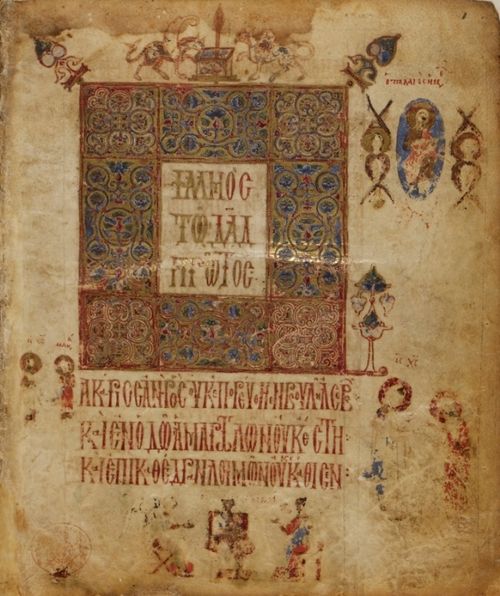 ΨΑΛΜΟΣ
ΤΩ ΔΑΔ
ΠΡΩΤΟΣ
ΙΣ ΧΣ
ΜΑΚΡΙΟΣ ΑΝΗΡ ΟΣ ΟΥΚ ΕΠΟΡΕΥΘΗ ΕΝ ΒΟΥΛΗ ΑΣΕΒ
Κ ΕΝ ΟΔΩ ΑΜΑΡΤΩΛΩΝ ΟΥΚ ΕΣΤΗ
Κ ΕΠΙ ΚΑΘΕΔΡΑΝ ΛΟΙΜΩΝ ΟΥΚ